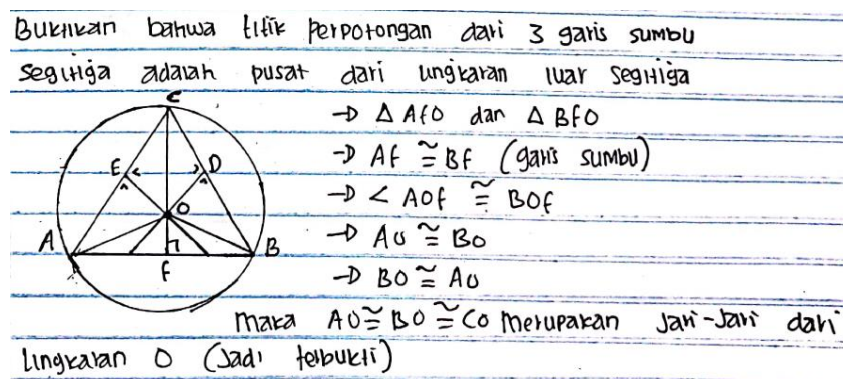 Buktikan bahwa titik perpotongan dari 3 garis sumbu
segitiga adalah pusat dari lingkaran luar segitiga
C
→ △ AFO dan △ BFO
E D
→ AF ≅ BF (garis sumbu)
O
→ < AOF ≅ BOF
A B
→ AO ≅ BO
F
→ BO ≅ AO
maka AO ≅ BO ≅ CO merupakan jari-jari dari
lingkaran O (jadi terbukti)